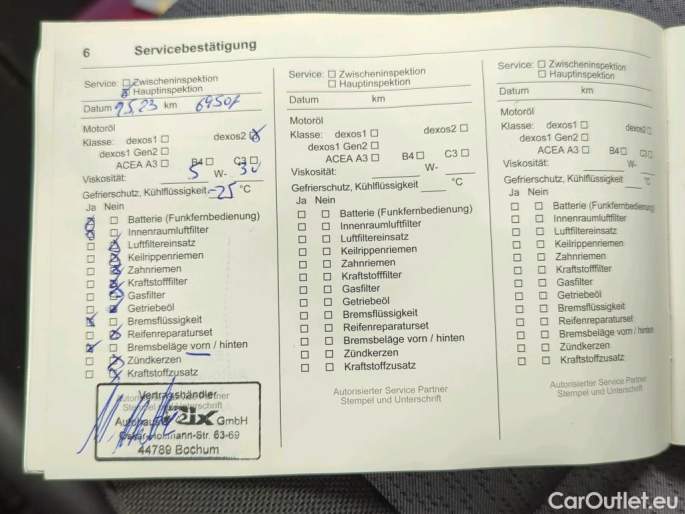 6 Servicebestätigung
Service: Zwischeninspektion
Hauptinspektion
Datum 9.5.23 km
Motoröl
Klasse: dexos1 dexos2
dexos1 Gen2
ACEA A3 B4 C3
Viskosität: 5 W- 30
Gefrierschutz, Kühlflüssigkeit -25 °C
Ja Nein
Batterie (Funkfernbedienung)
Innenraumluftfilter
Luftfiltereinsatz
Keilrippenriemen
Zahnriemen
Kraftstofffilter
Gasfilter
Getriebeöl
Bremsflüssigkeit
Reifenreparaturset
Bremsbeläge vorn / hinten
Zündkerzen
Kraftstoffzusatz
Vertragshändler
GmbH
63-69
44789 Bochum
Service: Zwischeninspektion
Hauptinspektion
Datum km
Motoröl
Klasse: dexos1 dexos2
dexos1 Gen2
ACEA A3 B4 C3
Viskosität: W-
Gefrierschutz, Kühlflüssigkeit °C
Ja Nein
Batterie (Funkfernbedienung)
Innenraumluftfilter
Luftfiltereinsatz
Keilrippenriemen
Zahnriemen
Kraftstofffilter
Gasfilter
Getriebeöl
Bremsflüssigkeit
Reifenreparaturset
Bremsbeläge vorn / hinten
Zündkerzen
Kraftstoffzusatz
Autorisierter Service Partner
Stempel und Unterschrift
Service: Zwischeninspektion
Hauptinspektion
Datum km
Motoröl
Klasse: dexos1 dexos2
dexos1 Gen2
ACEA A3 B4 C3
Viskosität: W-
Gefrierschutz, Kühlflüssigkeit °C
Ja Nein
Batterie (Funkfernbedienung)
Innenraumluftfilter
Luftfiltereinsatz
Keilrippenriemen
Zahnriemen
Kraftstofffilter
Gasfilter
Getriebeöl
Bremsflüssigkeit
Reifenreparaturset
Bremsbeläge vorn / hinten
Zündkerzen
Kraftstoffzusatz
Autorisierter Service Partner
Stempel und Unterschrift
CarOutlet.eu